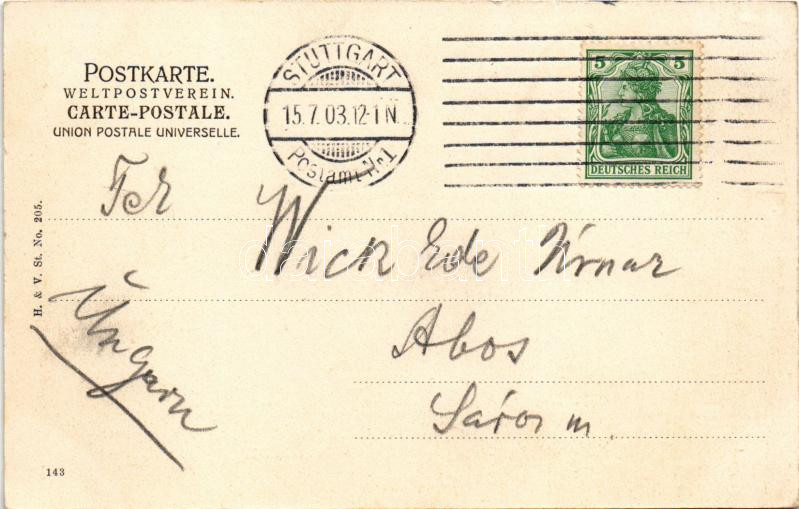 POSTKARTE.
WELTPOSTVEREIN.
CARTE-POSTALE.
UNION POSTALE UNIVERSELLE.
STUTTGART
15.7.03.12-1N.
Postamt Nr 1
5 5
DEUTSCHES REICH
H. & V. St. No. 205.
Wick Ede Úrnak
Abos
Sáros m.
Ungarn
143